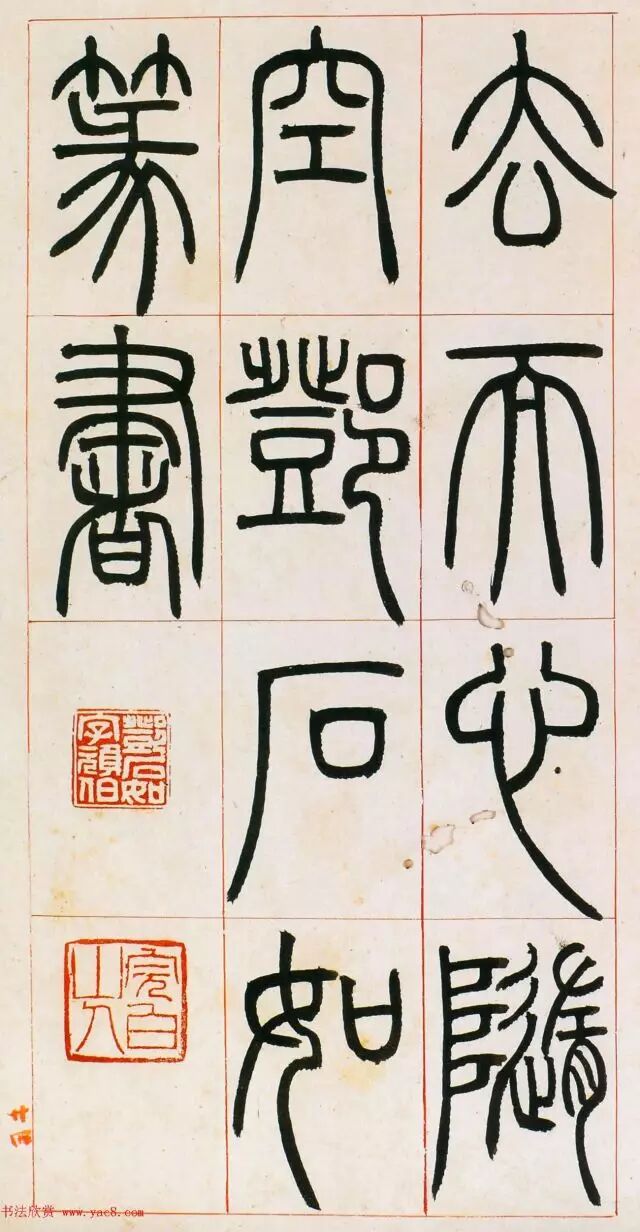 去而心隨
空鄧石如
篆書
鄧石如
字頑伯
完白
山人
廿四
书法欣赏 www.yac8.com